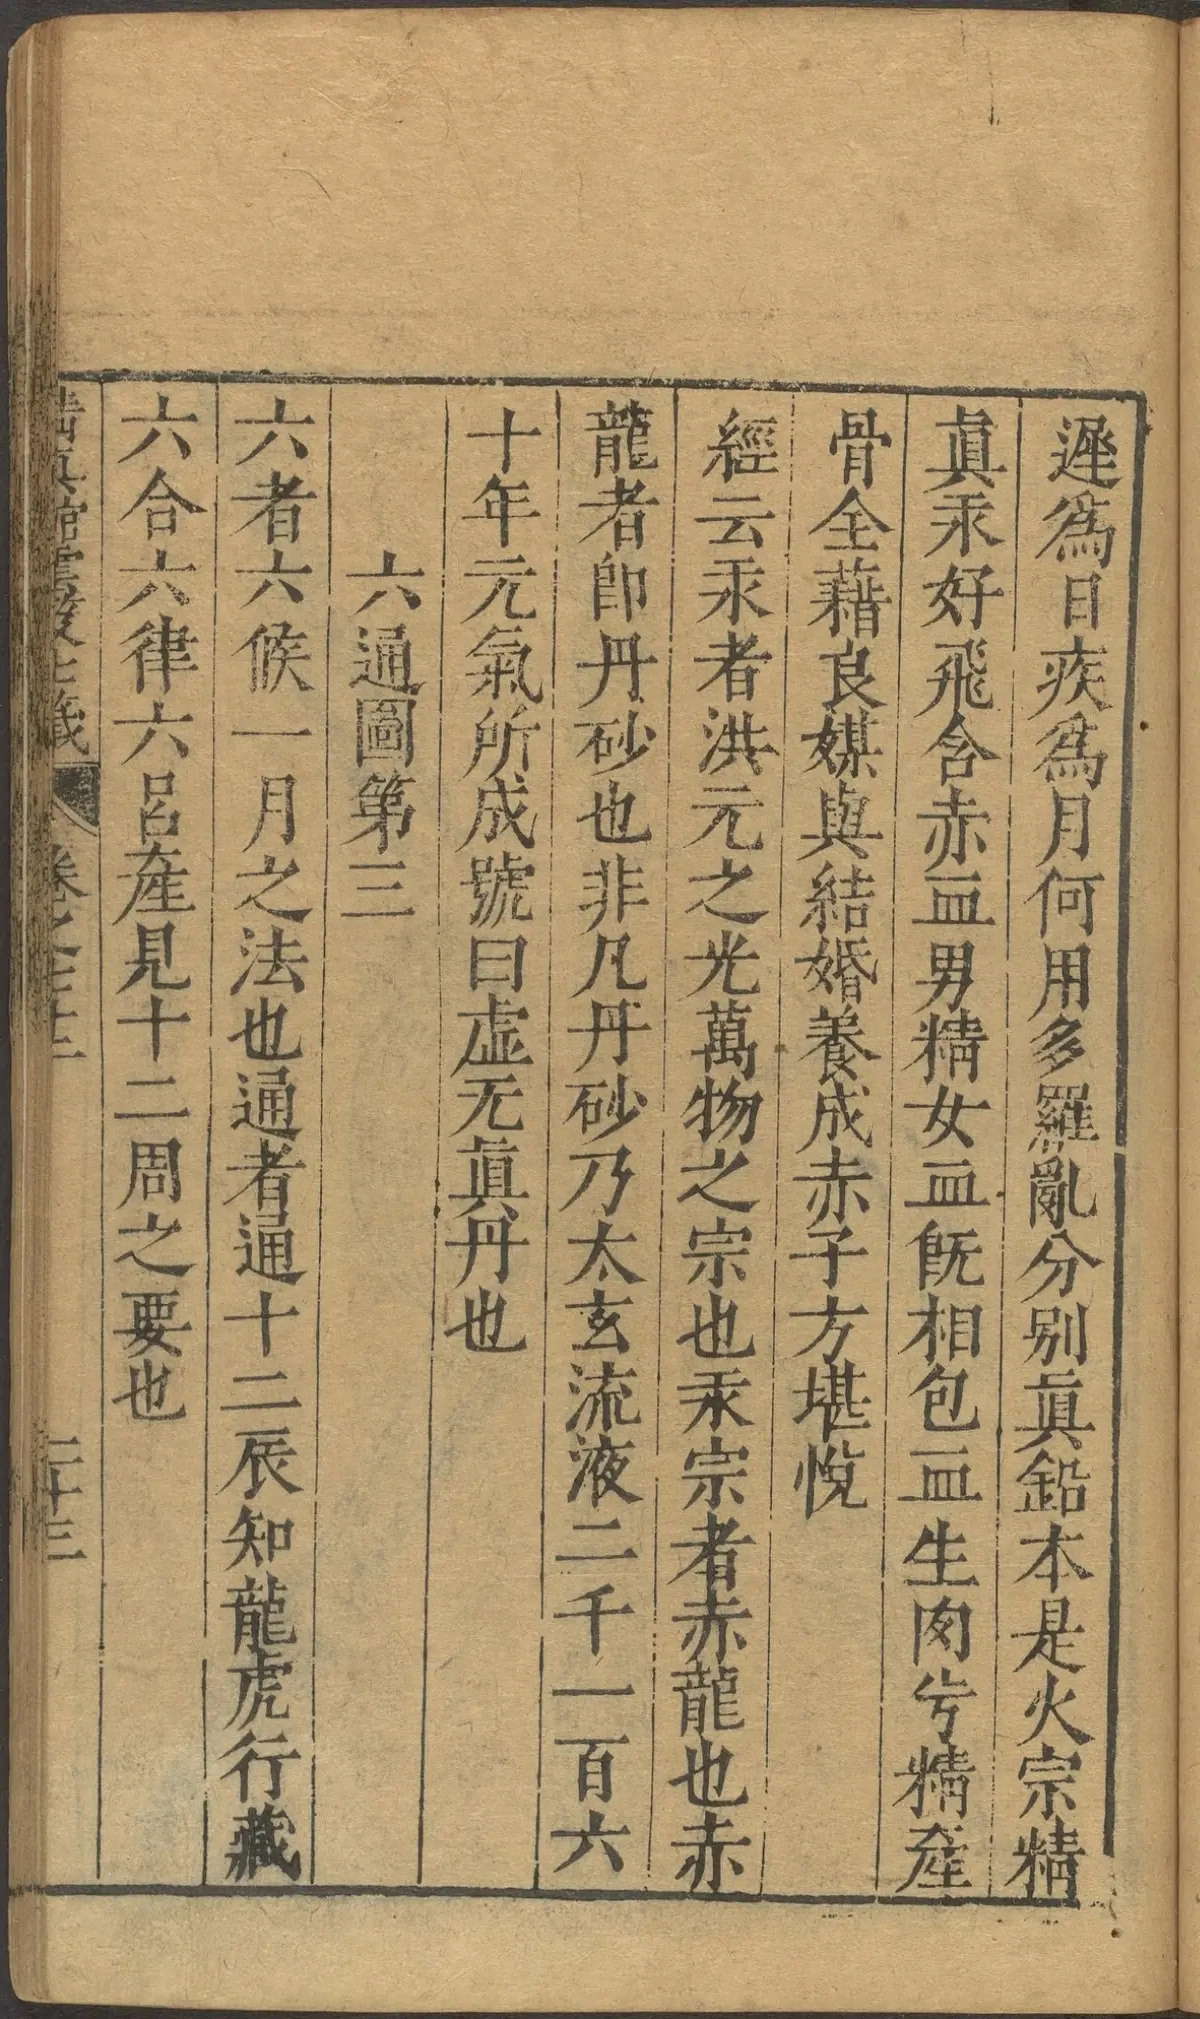 遲爲日疾爲月何用多羅亂分别眞鉛本是火宗精
眞汞好飛含赤血男精女血旣相包血生肉兮精產
骨全藉良媒與結婚養成赤子方堪悅
經云汞者洪元之光萬物之宗也汞宗者赤龍也赤
龍者卽丹砂也非凡丹砂乃太玄流液二千一百六
十年元氣所成號曰虛无眞丹也
六通圖第三
六者六候一月之法也通者通十二辰知龍虎行藏
六合六律六呂產見十二周之要也
清眞館雲笈七籤 卷之七十二 二十三